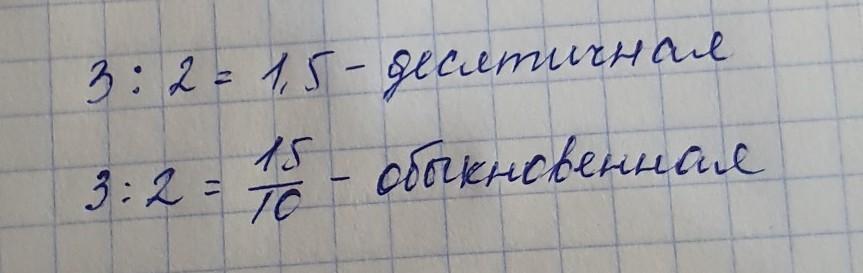 3 : 2 = 1,5 - десятичная
3 : 2 = 15/10 - обыкновенная